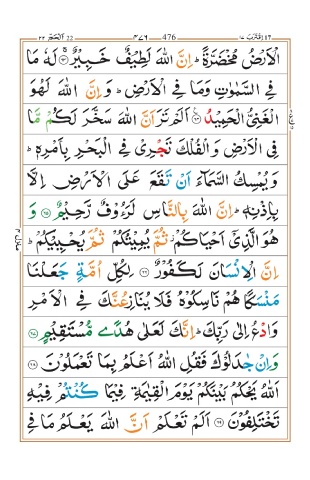 الحج ٢٢ ٤٧٦ 476 اقترب ١٧
الۡاَرۡضُ مُخۡضَرَّةً‌ ؕ اِنَّ اللّٰهَ لَطِيۡفٌ خَبِيۡرٌ ۚ‏ ﴿۶۳﴾ لَهٗ مَا
فِى السَّمٰوٰتِ وَمَا فِى الۡاَرۡضِ‌ ؕ وَاِنَّ اللّٰهَ لَهُوَ
الۡغَنِىُّ الۡحَمِيۡدُ ﴿۶۴﴾ اَلَمۡ تَرَ اَنَّ اللّٰهَ سَخَّرَ لَكُمۡ مَّا
فِى الۡاَرۡضِ وَالۡفُلۡكَ تَجۡرِىۡ فِى الۡبَحۡرِ بِاَمۡرِهٖ ؕ
وَيُمۡسِكُ السَّمَآءَ اَنۡ تَقَعَ عَلَى الۡاَرۡضِ اِلَّا
بِاِذۡنِهٖ ؕ اِنَّ اللّٰهَ بِالنَّاسِ لَرَءُوۡفٌ رَّحِيۡمٌ‏ ﴿۶۵﴾ وَ
هُوَ الَّذِىۡۤ اَحۡيَاكُمۡ ثُمَّ يُمِيۡتُكُمۡ ثُمَّ يُحۡيِيۡكُمۡ‌ ؕ
اِنَّ الۡاِنۡسَانَ لَـكَفُوۡرٌ‏ ﴿۶۶﴾ لِكُلِّ اُمَّةٍ جَعَلۡنَا
مَنۡسَكًا هُمۡ نَاسِكُوۡهُ‌ فَلَا يُنَازِعُنَّكَ فِى الۡاَمۡرِ‌
وَادۡعُ اِلٰى رَبِّكَ‌ ؕ اِنَّكَ لَعَلٰى هُدًى مُّسۡتَقِيۡمٍ‏ ﴿۶۷﴾
وَاِنۡ جٰدَلُوۡكَ فَقُلِ اللّٰهُ اَعۡلَمُ بِمَا تَعۡمَلُوۡنَ‏ ﴿۶۸﴾
اَللّٰهُ يَحۡكُمُ بَيۡنَكُمۡ يَوۡمَ الۡقِيٰمَةِ فِيۡمَا كُنۡتُمۡ فِيۡهِ
تَخۡتَلِفُوۡنَ‏ ﴿۶۹﴾ اَلَمۡ تَعۡلَمۡ اَنَّ اللّٰهَ يَعۡلَمُ مَا فِى